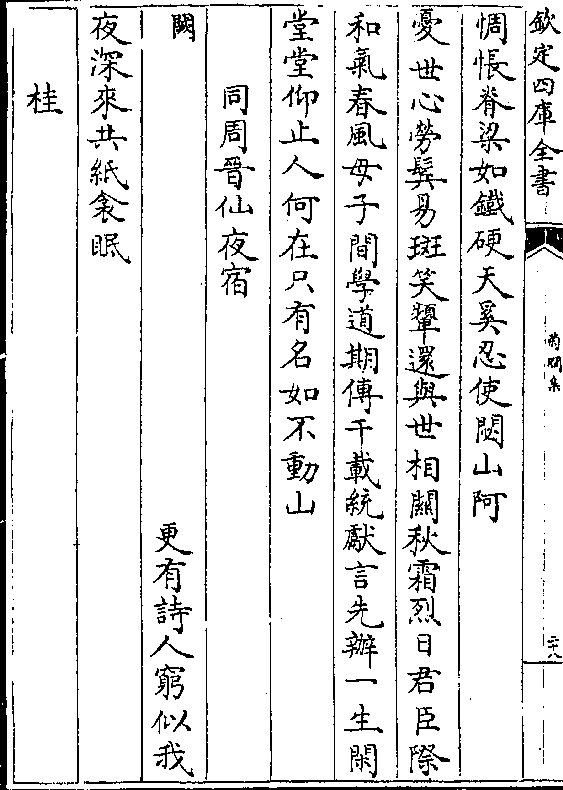 欽定四庫全書
菊磵集
二十八
惆悵脊梁如鐵硬天奚忍使閟山阿
憂世心勞鬂易斑笑顰還與世相關秋霜烈日君臣際
和氣春風母子間學道期傳千載統獻言先辦一生閑
堂堂仰止人何在只有名如不動山
同周晉仙夜宿
闕　更有詩人窮似我
夜深來共紙衾眠
桂